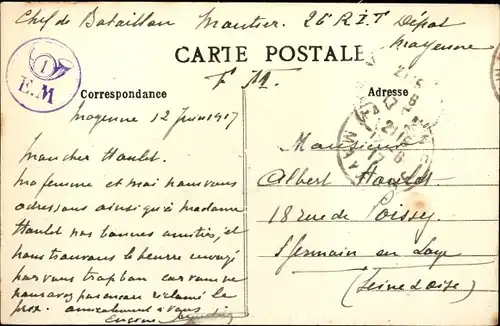 Chef de Bataillon Mautier. 26 R.I.T Dépot
Mayenne
CARTE POSTALE
F M.
1
E.M
Correspondance
Adresse
Mayenne 12 Juin 1917
Mon cher Hault
ma femme et moi nous vous
adressons ainsi qu'à madame
Hault nos bonnes amitiés, et
nous trouvons le beurre envoyé
par vous trop bon car vous ne
nous avez pas encore réclamé le
prix. amicalement à vous
Eugène
Monsieur
Albert Hault
18 rue de Poissy
St Germain en Laye
(Seine & Oise)